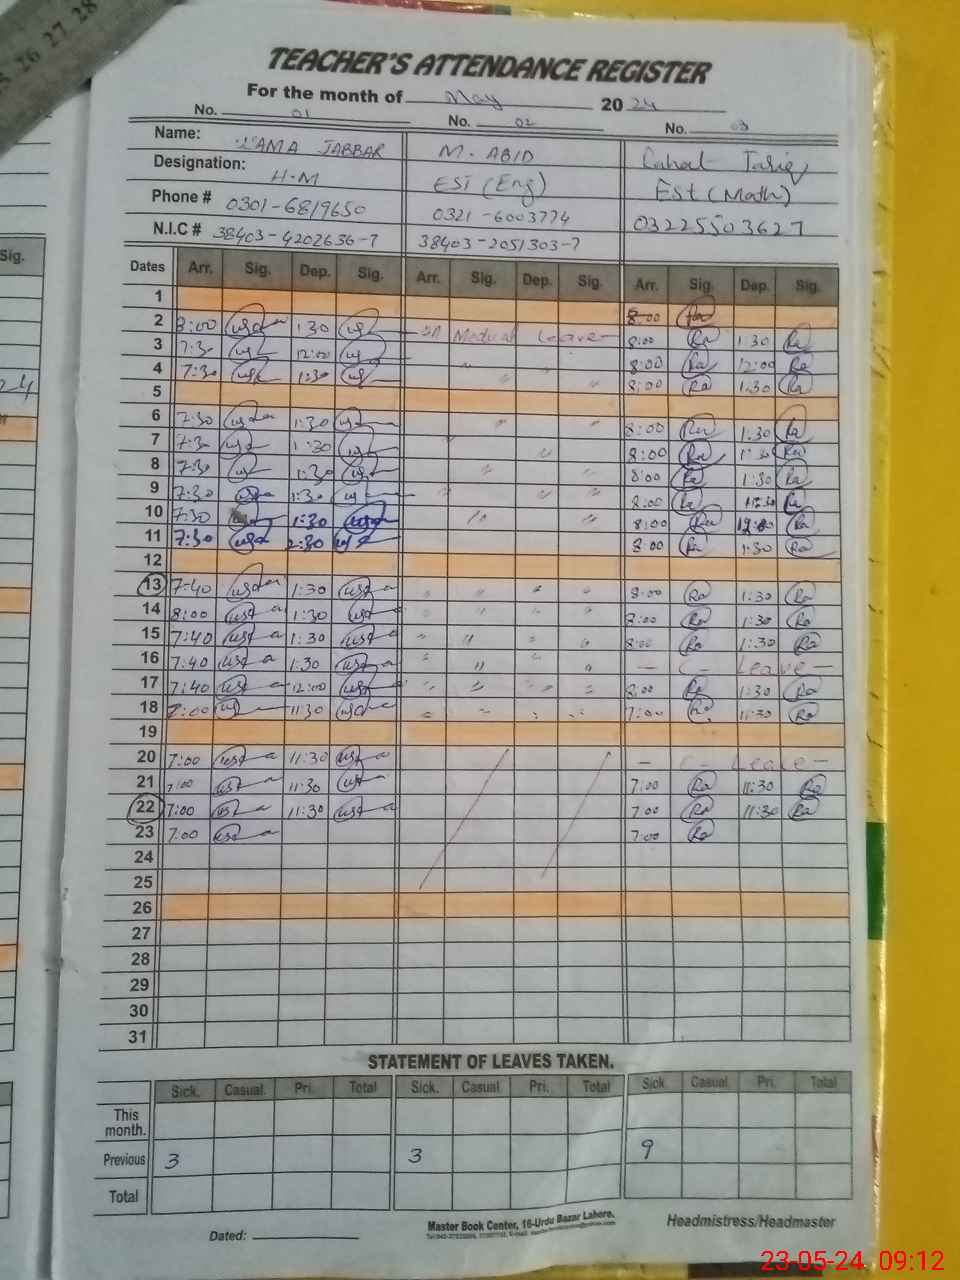 28
27
26
TEACHER'S ATTENDANCE REGISTER
For the month of May 2024
No. 01 No. 02 No. 03
Name: JABBAR M. ABID Tariq
Designation: H-M EST (Eng) Est (Math)
Phone # 0301-6819650 0321-6003774 03225503627
N.I.C # 38403-4202636-7 38403-2051303-7
Sig.
Dates Arr. Sig. Dep. Sig. Arr. Sig. Dep. Sig. Arr. Sig. Dep. Sig.
1 8:00 Ra
2 8:00 1:30 on Medical Leave 8:00 Ra 1:30 Ra
3 7:30 12:00 8:00 Ra 12:00 Ra
4 7:30 1:30 " " 8:00 Ra 1:30 Ra
5
6 7:30 1:30 " " 8:00 Ra 1:30 Ra
7 7:30 1:30 " " 8:00 Ra 1:30 Ra
8 7:30 1:30 " " 8:00 Ra 1:30 Ra
9 7:30 1:30 " " " 8:00 Ra Ra
10 7:30 1:30 " " 8:00 Ra Ra
11 7:30 2:30 8:00 Ra 1:30 Ra
12
13 7:40 1:30 " " " " 8:00 Ra 1:30 Ra
14 8:00 1:30 " " " " 8:00 Ra 1:30 Ra
15 7:40 1:30 " " " " 8:00 Ra 1:30 Ra
16 7:40 1:30 " " " " - C - Leave -
17 7:40 12:00 " " " " 8:00 Ra 1:30 Ra
18 7:00 11:30 " " " " 7:00 Ra 11:30 Ra
19
20 7:00 11:30 - C - Leave -
21 7:00 11:30 7:00 Ra 11:30 Ra
22 7:00 11:30 7:00 Ra 11:30 Ra
23 7:00 7:00 Ra
24
25
26
27
28
29
30
31
STATEMENT OF LEAVES TAKEN.
Sick. Casual. Pri. Total Sick. Casual Pri. Total Sick. Casual. Pri. Total
This month.
Previous 3 3 9
Total
Dated:
Master Book Center, 16-Urdu Bazar Lahore.
Headmistress/Headmaster
23-05-24 09:12